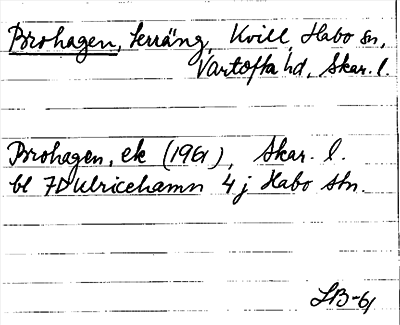 Brohagen, terräng, Kvill, Habo sn,
Vartofta hd, Skar. l.
Brohagen, ek (1961), Skar. l.
bl 7D Ulricehamn 4j Habo stn.
LB-61